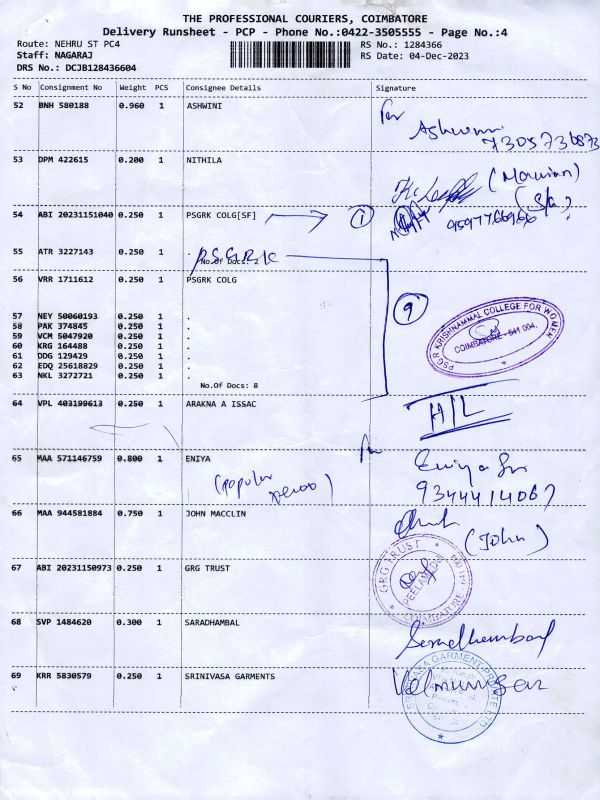 THE PROFESSIONAL COURIERS, COIMBATORE
Delivery Runsheet - PCP - Phone No.:0422-3505555 - Page No.:4
Route: NEHRU ST PC4 RS No.: 1284366
Staff: NAGARAJ RS Date: 04-Dec-2023
DRS No.: DCJB128436604
S No Consignment No Weight PCS Consignee Details Signature
52 BNH 580188 0.960 1 ASHWINI
for Ashwini
7305736873
53 DPM 422615 0.200 1 NITHILA
54 ABI 20231151040 0.250 1 PSGRK COLG[SF] 1
9597766966
55 ATR 3227143 0.250 1 . PSGRK
No.Of Docs: 2
56 VRR 1711612 0.250 1 PSGRK COLG
9
57 NEY 50060193 0.250 1 .
58 PAK 374845 0.250 1 .
59 VCM 5047920 0.250 1 .
60 KRG 164488 0.250 1 .
61 DDG 129429 0.250 1 .
62 EDQ 25618829 0.250 1 .
63 NKL 3272721 0.250 1 .
No.Of Docs: 8
PSGR KRISHNAMMAL COLLEGE FOR WOMEN
COIMBATORE - 641 004.
64 VPL 403199613 0.250 1 ARAKNA A ISSAC
65 MAA 571146759 0.800 1 ENIYA
(popular
9344414067
66 MAA 944581884 0.750 1 JOHN MACCLIN
(John)
67 ABI 20231150973 0.250 1 GRG TRUST
GRG TRUST
PEELAMEDU
COIMBATORE
68 SVP 1484620 0.300 1 SARADHAMBAL
69 KRR 5830579 0.250 1 SRINIVASA GARMENTS